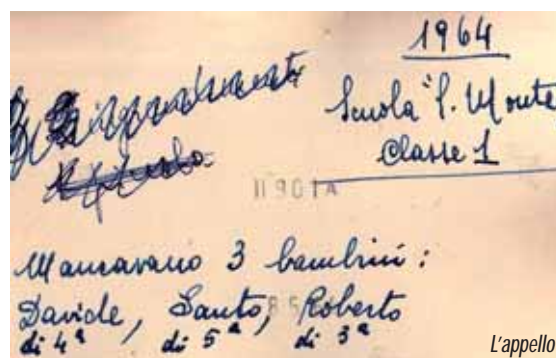 1964
Scuola "P. Monte
Classe 1
11901A
Mancavano 3 bambini:
Davide, Santo, Roberto
di 4ª di 5ª di 3ª
L'appello